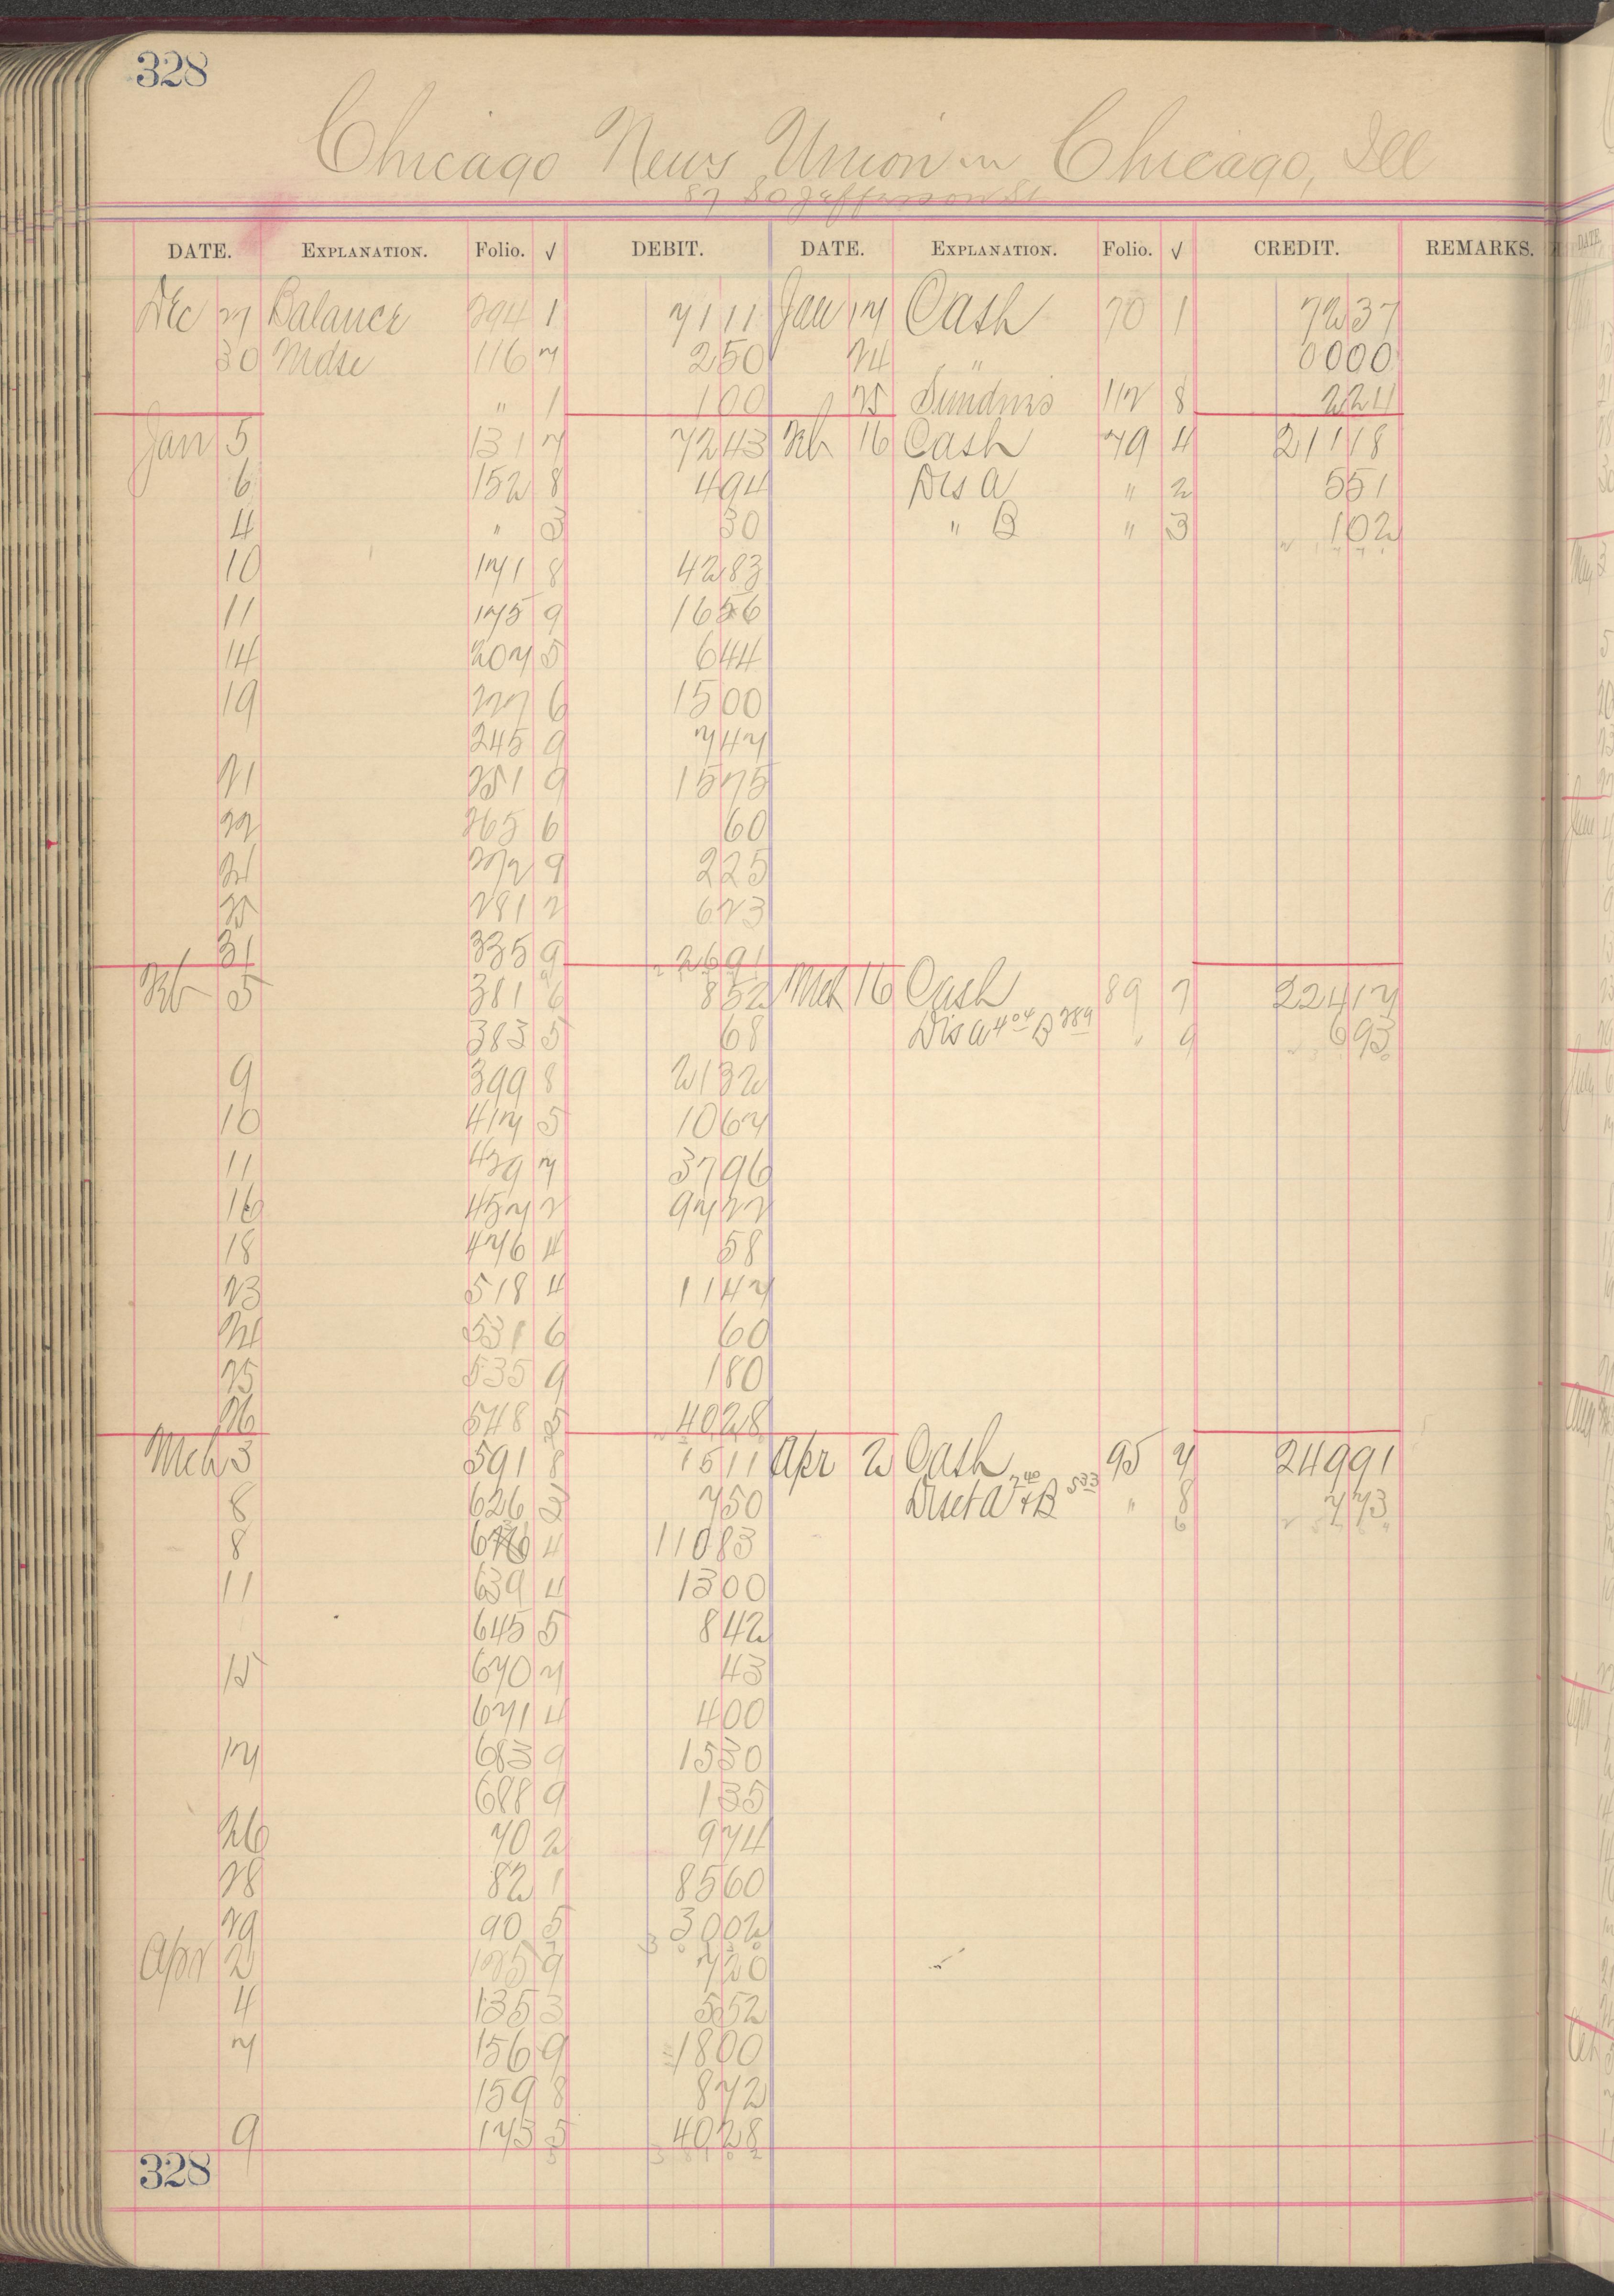 328
Chicago News Union Chicago, Ill
87 So Jefferson St
DATE. EXPLANATION. Folio. √ DEBIT. DATE. EXPLANATION. Folio. √ CREDIT. REMARKS.
Dec 27 Balance 294 1 7111 Jan 17 Cash 70 1 7237
30 Mdse 116 7 250 24 " 0000
" 1 100 25 Sundries 112 8 224
Jan 5 131 7 7243 Feb 16 Cash 79 4 21118
6 152 8 494 Dis A " 2 551
4 " 3 30 " B " 3 102
10 171 8 4283
11 175 9 1656
14 207 5 644
19 227 6 1500
245 9 747
21 251 9 1575
22 265 6 60
24 272 9 225
25 281 2 623
31 335 9 2691
Feb 5 381 6 852 Mch 16 Cash 89 7 22417
383 5 68 Dis A 404 B 289 " 9 693
9 399 8 2132
10 417 5 1067
11 429 7 3796
16 457 2 9722
18 476 4 58
23 518 4 1147
24 531 6 60
25 535 9 180
26 548 5 4028
Mch 3 591 8 1511 Apr 2 Cash 95 7 24991
8 626 3 750 Disct A 240 + B 533 " 8 773
8 4 11083
11 639 4 1300
645 5 842
15 670 7 43
671 4 400
17 683 9 1530
688 9 135
26 70 2 974
28 82 1 8560
29 90 5 3002
Apr 2 125 9 720
4 135 3 552
7 156 9 1800
159 8 872
9 175 5 4028
328